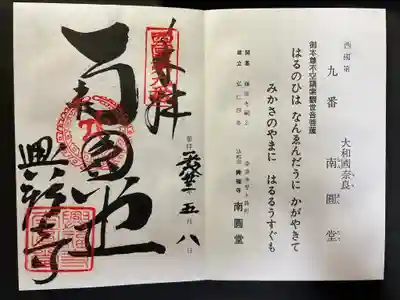 西國第
九番 南圓堂
大和國奈良
御本尊不空羂索觀世音菩薩
はるのひは なんゑんだうに かがやきて
みかさのやまに はるるうすぐも
開基
建立 弘仁四年
法相宗 興福寺 南圓堂
奉拝
五月八日
南圓堂
興福寺